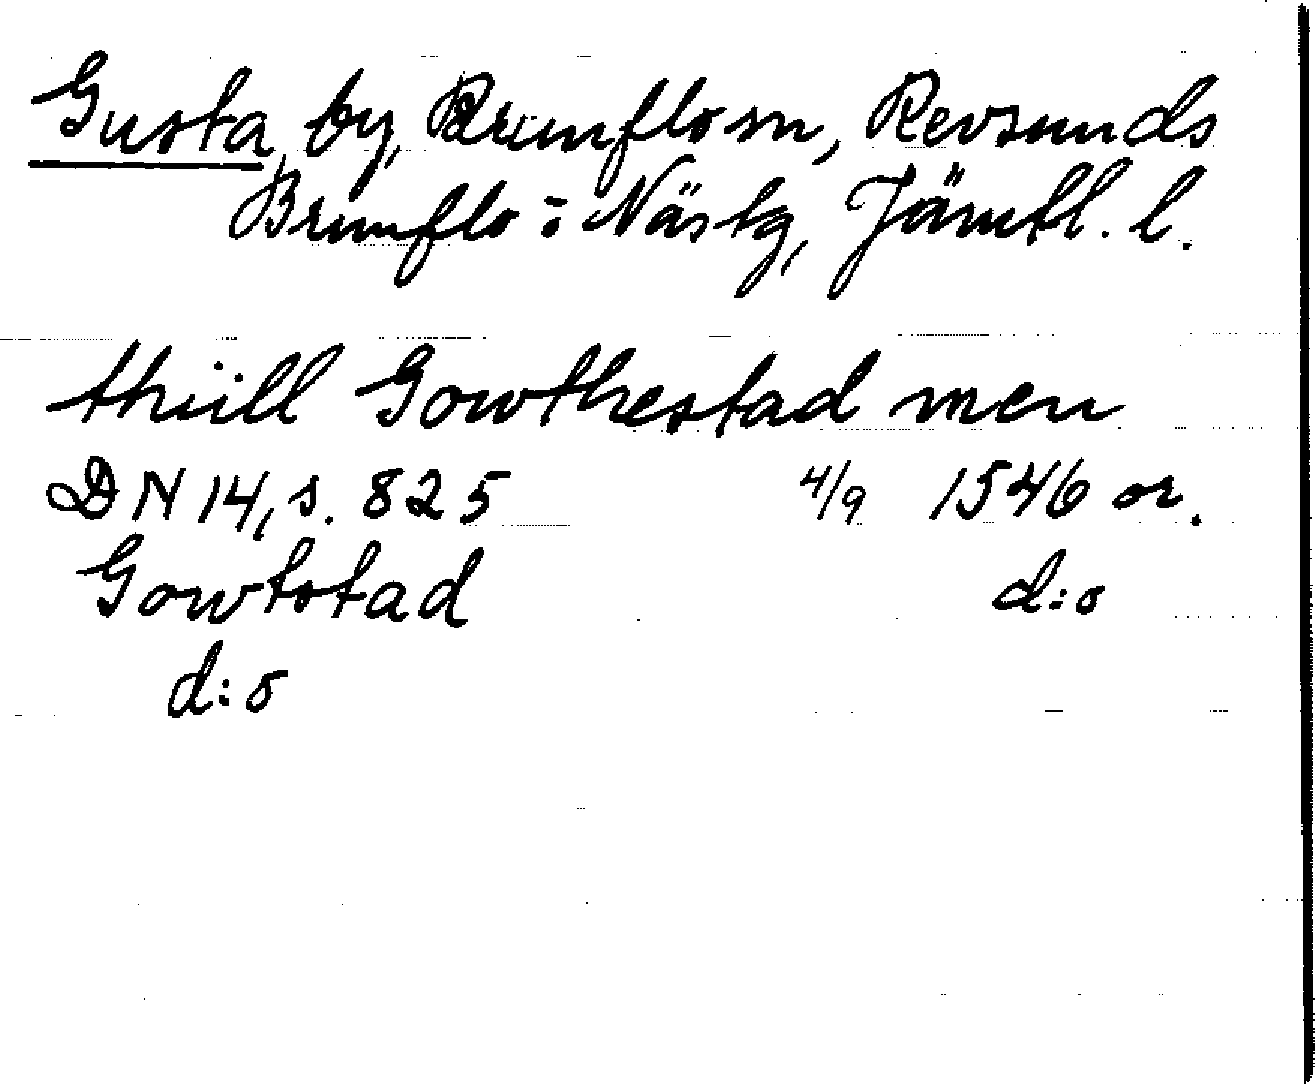 Gusta, by, Brunflo sn, Revsunds
Brunflo o Näs tg, Jämtl. l.
thiill Gowthestad men
DN 14, s. 825 4/9 1546 or.
Gowtstad d:o
d:o